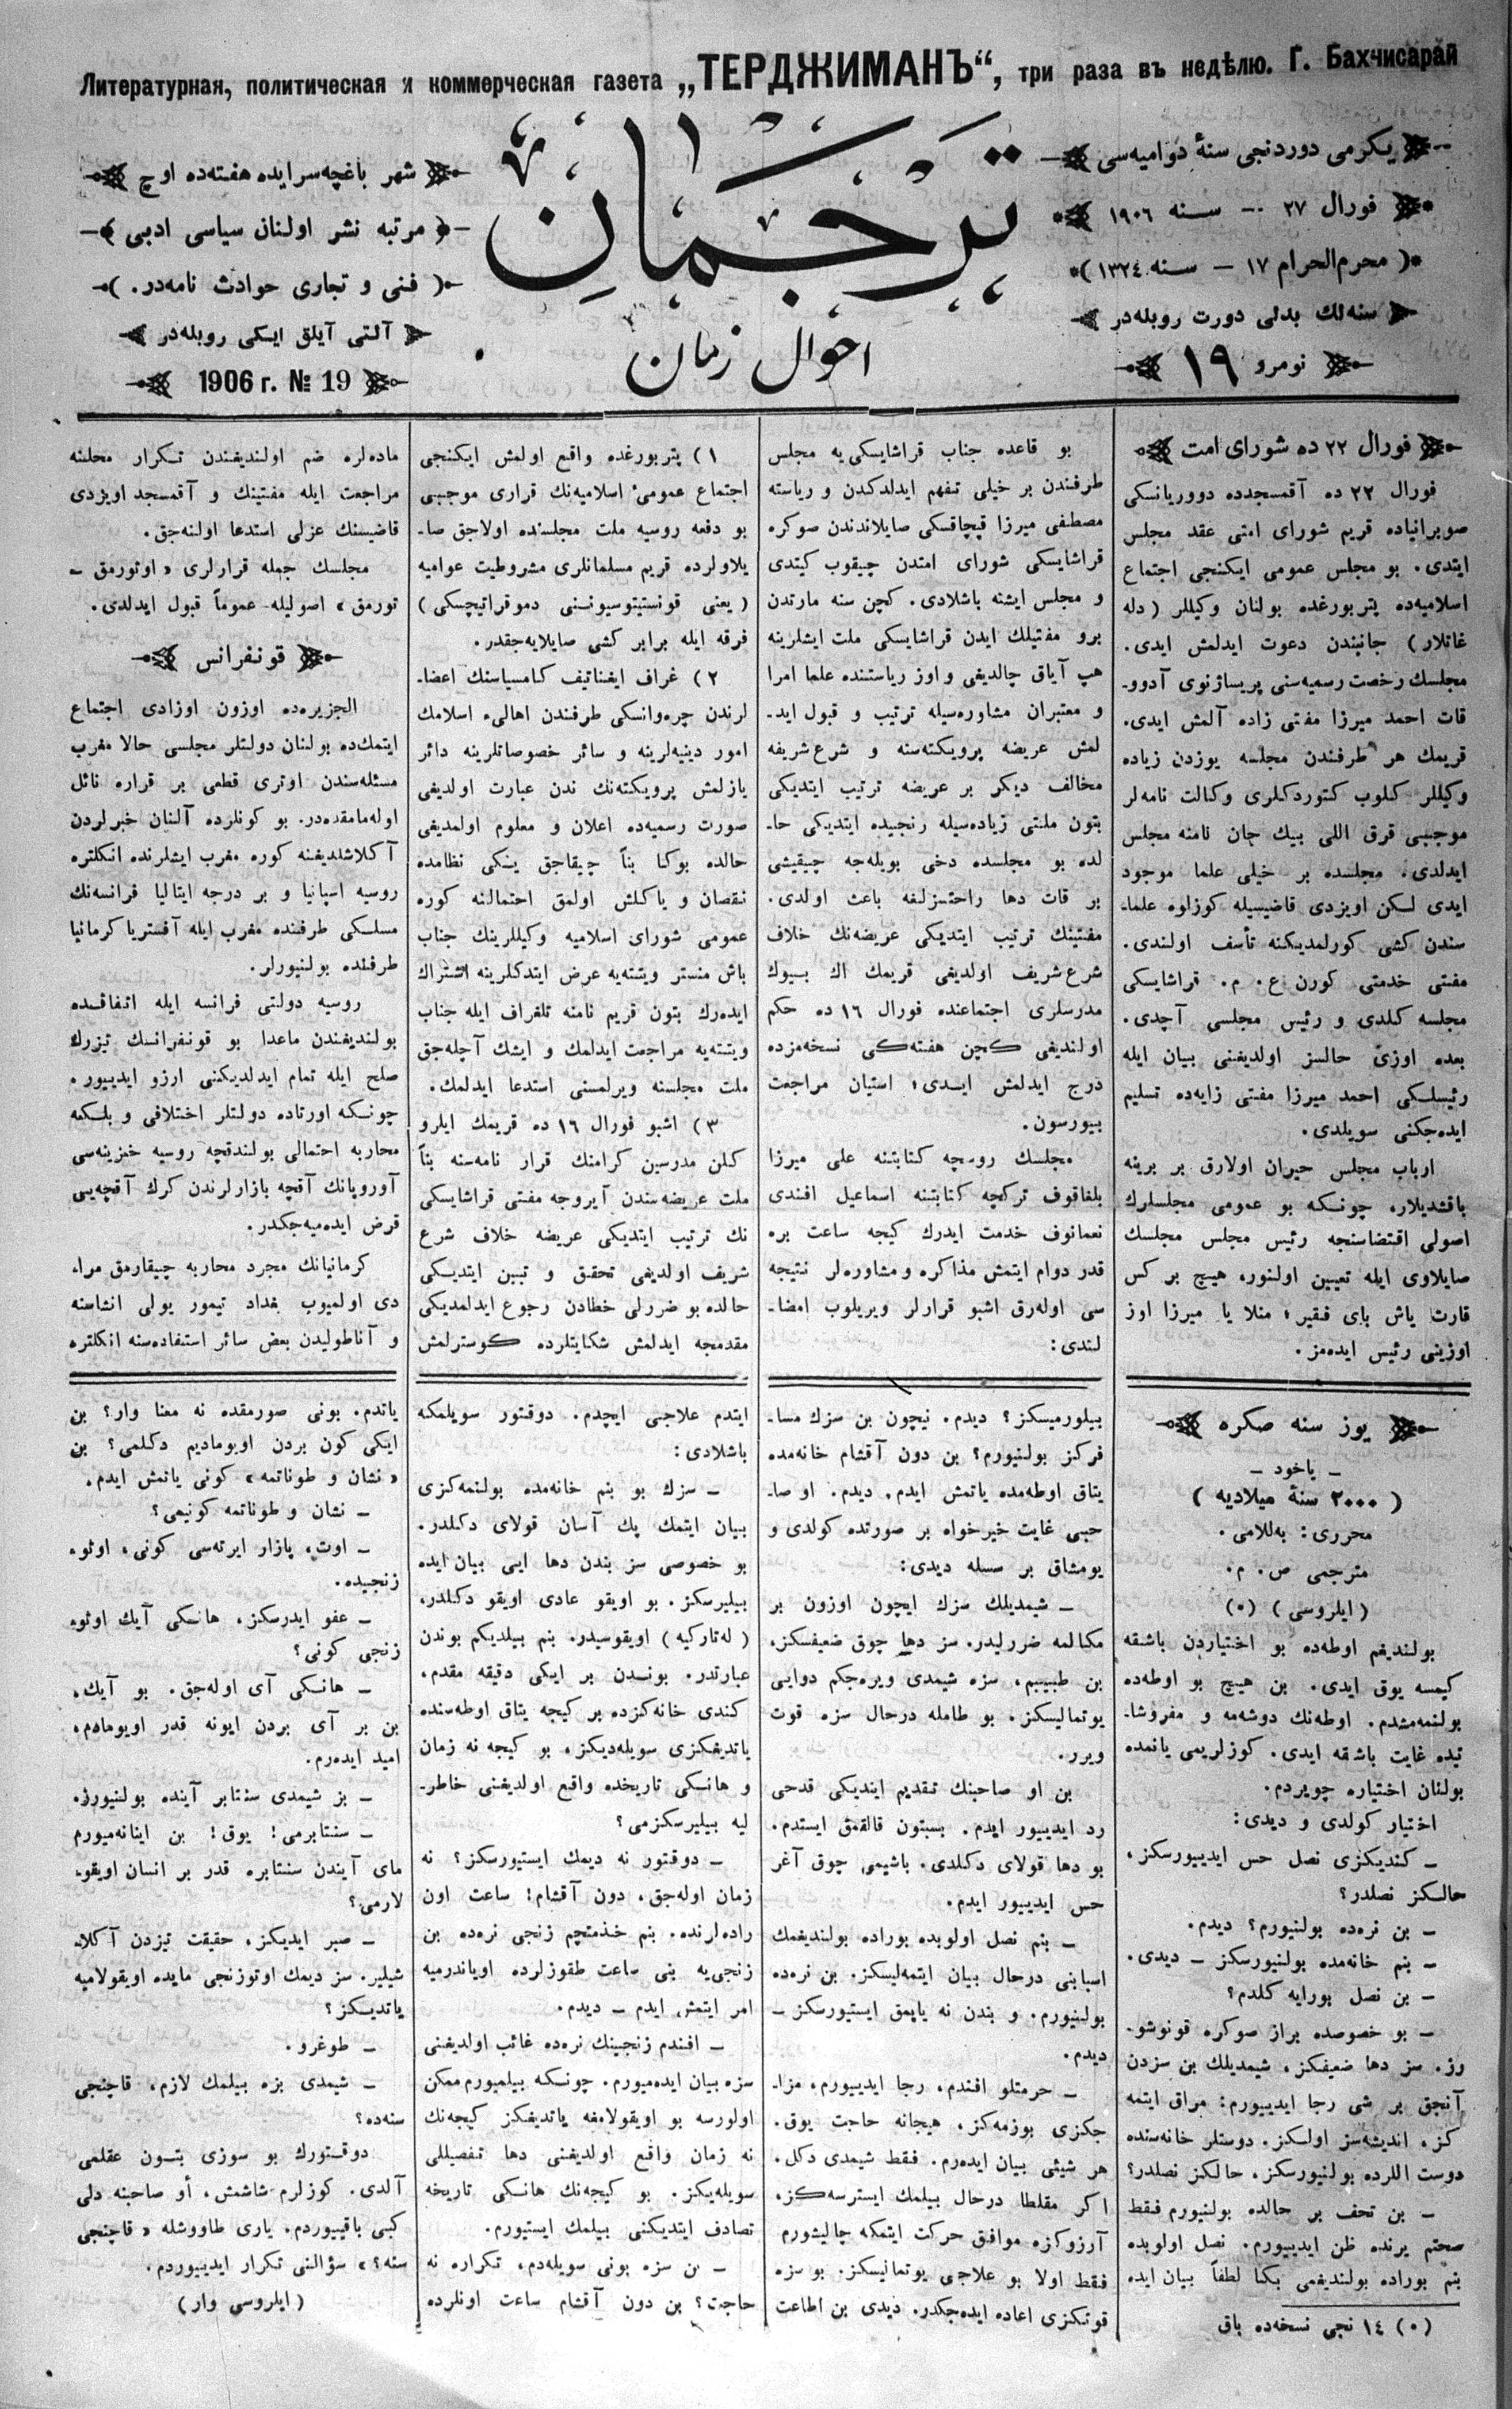 Литературная, политическая и коммерческая газета „ТЕРДЖИМАНЪ“, три раза въ недѣлю. Г. Бахчисарай
يكرمى دوردنجى سنهٔ دواميه‌سى
فورال ٢٧ — سنه ١٩٠٦
(محرم‌الحرام ١٧ — سنه ١٣٢٤)
سنه‌لك بدلى دورت روبله‌در
نومرو ١٩
ترجمان
احوال زمان
شهر باغچه‌سرايده هفته‌ده اوچ
مرتبه نشر اولنان سياسى ادبى
فنى و تجارى حوادث نامه‌در.
آلتى آيلق ايكى روبله‌در
1906 г. № 19
فورال ٢٢ ده شوراى امت
فورال ٢٢ ده آقمسجدده دووريانسكى
صوبرانياده قريم شوراى امتى عقد مجلس
ايتدى. بو مجلس عمومى ايكنجى اجتماع
اسلاميه‌ده پتربورغده بولنان وكيللر (دله
غاتلار) جانبندن دعوت ايدلمش ايدى.
مجلسك رخصت رسميه‌سنى پريساژنوى آدوو-
قات احمد ميرزا مفتى زاده آلمش ايدى.
قريمك هر طرفندن مجلسه يوزدن زياده
وكيللر كلوب كتوردكلرى وكالت نامه‌لر
موجبى قرق اللى بيك جان نامنه مجلس
ايدلدى. مجلسده بر خيلى علما موجود
ايدى لكن اويزدى قاضيسيله كوزلوه علما-
سندن كشى كورلمديكنه تأسف اولندى.
مفتى خدمتى كورن ع. م. قراشايسكى
مجلسه كلدى و رئيس مجلسى آچدى.
بعده اوزى حالسز اولديغنى بيان ايله
رئيسلكى احمد ميرزا مفتى زايه‌ده تسليم
ايده‌جكنى سويلدى.
ارباب مجلس حيران اولارق بر برينه
باقشديلار، چونكه بو عمومى مجلسلرك
اصولى اقتضاسنجه رئيس مجلس مجلسك
صايلاوى ايله تعيين اولنور، هيچ بر كس
قارت ياش باى فقير، منلا يا ميرزا اوز
اوزينى رئيس ايده‌مز.
بو قاعده جناب قراشايسكى‌يه مجلس
طرفندن بر خيلى تفهم ايدلدكدن و رياسته
مصطفى ميرزا قپچاقسكى صايلاندندن صوكره
قراشايسكى شوراى امتدن چيقوب كيتدى
و مجلس ايشنه باشلادى. كچن سنه مارتدن
برو مفتيلك ايدن قراشايسكى ملت ايشلرينه
هپ آياق چالديغى و اوز رياستنده علما امرا
و معتبران مشاوره‌سيله ترتيب و قبول ايد-
لمش عريضه پرويكته‌سنه و شرع شريفه
مخالف ديكر بر عريضه ترتيب ايتديكى
بتون ملتى زياده‌سيله رنجيده ايتديكى حا-
لده بو مجلسده دخى بويله‌جه چيقيشى
بر قات دها راحتسزلغه باعث اولدى.
مفتينك ترتيب ايتديكى عريضه‌نك خلاف
شرع شريف اولديغى قريمك اك بيوك
مدرسلرى اجتماعنده فورال ١٦ ده حكم
اولنديغى كچن هفته‌كى نسخه‌مزده
درج ايدلمش ايدى، استيان مراجعت
بيورسون.
مجلسك روسچه كتابتنه على ميرزا
بلغاقوف تركچه كتابتنه اسماعيل افندى
نعمانوف خدمت ايدرك كيجه ساعت بره
قدر دوام ايتمش مذاكره و مشاوره‌لر نتيجه
سى اوله‌رق اشبو قرارلر ويريلوب امضا-
لندى:
١) پتربورغده واقع اولمش ايكنجى
اجتماع عمومئ اسلاميه‌نك قرارى موجبى
بو دفعه روسيه ملت مجلسنده اولاجق صا-
يلاولرده قريم مسلمانلرى مشروطيت عواميه
(يعنى قونستيتوسيوننى دموقراتيچسكى)
فرقه ايله برابر كشى صايلايه‌جقدر.
٢) غراف ايغناتيف كاميسياسنك اعضا-
لرندن چره‌وانسكى طرفندن اهالىء اسلامك
امور دينيه‌لرينه و سائر خصوصاتلرينه دائر
يازلمش پرويكته‌نك ندن عبارت اولديغى
صورت رسميه‌ده اعلان و معلوم اولمديغى
حالده بوكا بناً چيقاجق ينكى نظامده
نقصان و ياكلش اولمق احتمالنه كوره
عمومى شوراى اسلاميه وكيللرينك جناب
باش منستر ويتته‌يه عرض ايتدكلرينه اشتراك
ايده‌رك بتون قريم نامنه تلغراف ايله جناب
ويتته‌يه مراجعت ايدلمك و ايشك آچله‌جق
ملت مجلسنه ويرلمسنى استدعا ايدلمك.
٣) اشبو فورال ١٦ ده قريمك ايلرو
كلن مدرسين كرامنك قرار نامه‌سنه بناً
ملت عريضه‌سندن آيروجه مفتى قراشايسكى
نك ترتيب ايتديكى عريضه خلاف شرع
شريف اولديغى تحقيق و تبين ايتديكى
حالده بو ضررلى خطادن رجوع ايدلمديكى
مقدمجه ايدلمش شكايتلرده كوسترلمش
ماده‌لره ضم اولنديغندن تكرار محلنه
مراجعت ايله مفتينك و آقمسجد اويزدى
قاضيسنك عزلى استدعا اولنه‌جق.
مجلسك جمله قرارلرى «اوتورمق -
تورمق» اصوليله عموماً قبول ايدلدى.
قونفرانس
الجزيره‌ده اوزون اوزادى اجتماع
ايتمكده بولنان دولتلر مجلسى حالا مغرب
مسئله‌سندن اوترى قطعى بر قراره نائل
اوله‌مامقده‌در. بو كونلرده آلنان خبرلردن
آكلاشلديغنه كوره مغرب ايشلرنده انكلتره
روسيه اسپانيا و بر درجه ايتاليا فرانسه‌نك
مسلكى طرفنده مغرب ايله آفستريا كرمانيا
طرفنده بولنيورلر.
روسيه دولتى فرانسه ايله اتفاقده
بولنديغندن ماعدا بو قونفرانسك تيزرك
صلح ايله تمام ايدلديكنى ارزو ايدييور.
چونكه اورتاده دولتلر اختلافى و بلكه
محاربه احتمالى بولندقچه روسيه خزينه‌سى
آوروپانك آقچه بازارلرندن كرك آقچه‌يى
قرض ايده‌ميه‌جكدر.
كرمانيانك مجرد محاربه چيقارمق مرا-
دى اولميوب بغداد تيمور يولى انشاسنه
و آناطوليدن بعض سائر استفاده‌سنه انكلتره
يوز سنه صكره
- ياخود -
(٢٠٠٠ سنهٔ ميلاديه)
محررى: به‌للامى.
مترجمى ص. م.
(ايلروسى) (٠)
بولنديغم اوطه‌ده بو اختياردن باشقه
كيمسه يوق ايدى. بن هيچ بو اوطه‌ده
بولنمه‌مشدم. اوطه‌نك دوشه‌مه و مفروشا-
تيده غايت باشقه ايدى. كوزلريمى يانمده
بولنان اختياره چويردم.
اختيار كولدى و ديدى:
- كنديكزى نصل حس ايدييورسكز،
حالكز نصلدر؟
- بن نره‌ده بولنيورم؟ ديدم.
- بنم خانه‌مده بولنيورسكز - ديدى.
- بن نصل بورايه كلدم؟
- بو خصوصده براز صوكره قونوشو-
رز. سز دها ضعيفكز، شيمديلك بن سزدن
آنجق بر شى رجا ايدييورم: مراق ايتمه
كز، انديشه‌سز اولكز. دوستلر خانه‌سنده
دوست اللرده بولنيورسكز، حالكز نصلدر؟
- بن تحف بر حالده بولنيورم فقط
صحتم يرنده ظن ايدييورم. نصل اولوبده
بنم بوراده بولنديغمى بكا لطفاً بيان ايده
(٠) ١٤ نجى نسخه‌ده باق
بيلورميسكز؟ ديدم. نيچون بن سزك مسا-
فركز بولنيورم؟ بن دون آقشام خانه‌مده
يتاق اوطه‌مده ياتمش ايدم، ديدم. او صا-
حبى غايت خيرخواه بر صورتده كولدى و
يومشاق بر سسله ديدى:
- شيمديلك سزك ايچون اوزون بر
مكالمه ضررليدر. سز دها چوق ضعيفسكز.
بن طبيبم، سزه شيمدى ويره‌جكم دوايى
يوتماليسكز. بو طامله درحال سزه قوت
ويرر.
بن او صاحبنك تقديم ايتديكى قدحى
رد ايدييور ايدم. بسبتون قالقمق ايستدم.
بو دها قولاى دكلدى. باشيمى چوق آغر
حس ايدييور ايدم.
- بنم نصل اولوبده بوراده بولنديغمك
اسبابنى درحال بيان ايتمه‌ليسكز. بن نره‌ده
بولنيورم. و بندن نه ياپمق ايستيورسكز -
ديدم.
- حرمتلو افندم، رجا ايدييورم، مزا-
جكزى بوزمه‌كز، هيجانه حاجت يوق.
هر شيئى بيان ايده‌رم. فقط شيمدى دكل.
اكر مقلطا درحال بيلمك ايسترسه‌كز،
آرزوكزه موافق حركت ايتمكه چاليشورم
فقط اولا بو علاجى يوتماليسكز. بو سزه
قوتكزى اعاده ايده‌جكدر. ديدى بن اطاعت
ايتدم علاجى ايچدم. دوقتور سويلمكه
باشلادى:
- سزك بو بنم خانه‌مده بولنمه‌كزى
بيان ايتمك پك آسان قولاى دكلدر.
بو خصوصى سز بندن دها ايى بيان ايده
بيليرسكز. بو اويقو عادى اويقو دكلدر،
(له‌تاركيه) اويقوسيدر. بنم بيلديكم بوندن
عبارتدر. بوندن بر ايكى دقيقه مقدم،
كندى خانه‌كزده بر كيجه يتاق اوطه‌سنده
ياتديغكزى سويله‌ديكز، بو كيجه نه زمان
و هانكى تاريخده واقع اولديغنى خاطر-
ليه بيليرسكزمى؟
- دوقتور نه ديمك ايستيورسكز؟ نه
زمان اوله‌جق، دون آقشام! ساعت اون
راده‌لرنده. بنم خذمتچم زنجى نره‌ده بن
زنجى‌يه بنى ساعت طقوزلرده اوياندرميه
امر ايتمش ايدم - ديدم.
- افندم زنجينك نره‌ده غائب اولديغنى
سزه بيان ايده‌ميورم. چونكه بيلميورم ممكن
اولورسه بو اويقولامغه ياتديغكز كيجه‌نك
نه زمان واقع اولديغنى دها تفصيللى
سويله‌يكز. بو كيجه‌نك هانكى تاريخه
تصادف ايتديكنى بيلمك ايستيورم.
- بن سزه بونى سويله‌دم، تكراره نه
حاجت؟ بن دون آقشام ساعت اونلرده
ياتدم. بونى صورمقده نه معنا وار؟ بن
ايكى كون بردن اويوماديم دكلمى؟ بن
«نشان و طوناتمه» كونى ياتمش ايدم.
- نشان و طوناتمه كونيمى؟
- اوت، پازار ايرته‌سى كونى، اوتو-
زنجيده.
- عفو ايدرسكز، هانكى آيك اوتو-
زنجى كونى؟
- هانكى آى اوله‌جق. بو آيك،
بن بر آى بردن ايونه قدر اويومادم،
اميد ايده‌رم.
- بز شيمدى سنتابر آينده بولنيورز.
- سنتابرمى! يوق! بن اينانه‌ميورم
ماى آيندن سنتابره قدر بر انسان اويقو-
لارمى؟
- صبر ايديكز، حقيقت تيزدن آكلا-
شيلير. سز ديمك اوتوزنجى مايده اويقولاميه
ياتديكز؟
- طوغرو.
- شيمدى بزه بيلمك لازم، قاچنجى
سنه‌ده؟
دوقتورك بو سوزى بتون عقلمى
آلدى. كوزلرم شاشمش، أو صاحبنه دلى
كبى باقييوردم. يارى طاووشله «قاچنجى
سنه؟» سؤالنى تكرار ايدييوردم.
(ايلروسى وار)